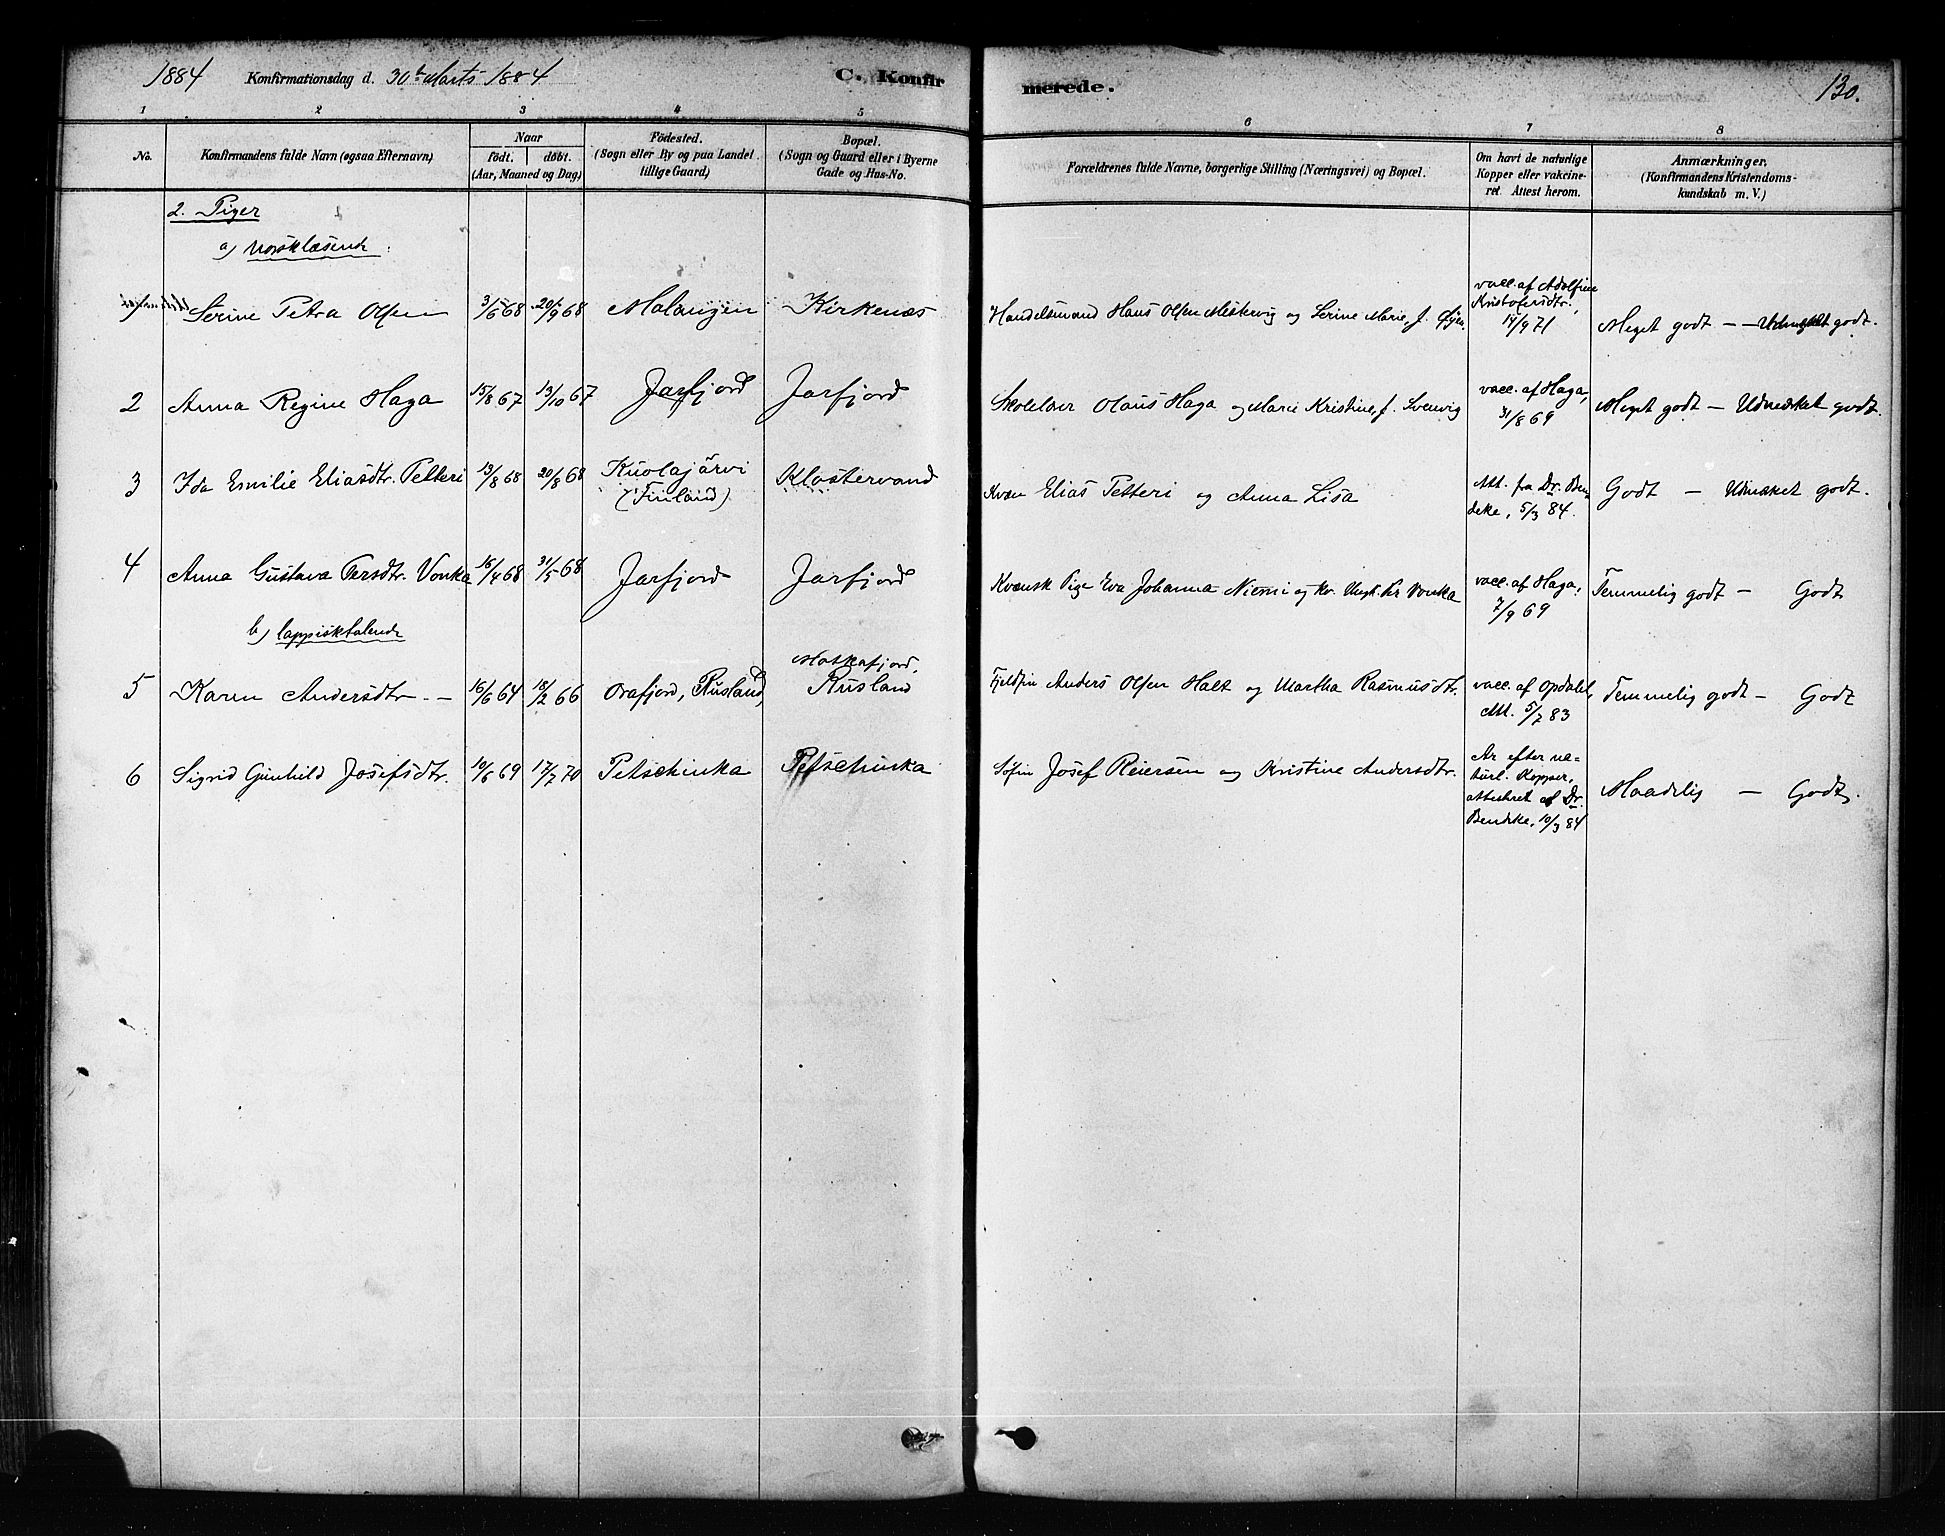 1884 Konfirmationsdag d. 30te Marts 1884 C. Konfirmerede. 130.
1 2 3 4 5 6 7 8
No. Konfirmandens fulde Navn (ogsaa Efternavn) Naar født. døbt. (Aar, Maaned og Dag) Fødested. (Sogn eller By og paa Landet tillige Gaard) Bopæl. (Sogn og Gaard eller i Byerne Gade og Hus-No. Forældrenes fulde Navne, borgerlige Stilling (Næringsvei) og Bopæl. Om havt de naturlige Kopper eller vakcineret Attest herom. Anmærkninger, (Konfirmandens Kristendomskundskab m. V.)
2. Piger
a) norsklæsende:
Serine Petra Olsen 3/5 68 20/9 68 Malangen Kirkenæs Handelsmand Hans Olsen Mestervig og Serine Marie, f. Øyen vacc. af Adolfine Kristofersdtr. 14/9 71 Meget godt – Udmærket godt.
2 Anna Regine Haga 15/8 67 13/10 67 Jarfjord Jarfjord Skolelær Olaus Haga og Marie Kristine, f. Svenvig vacc. af Haga, 31/8 69 Meget godt – Udmærket godt.
3 Ida Emilie Eliasdtr. Petteri 13/8 68 20/8 68 Kuolajärvi (Finland) Klostervand Kvæn Elias Petteri og Anna Lisa Att. fra Dr. Bendeke, 5/3 84. Godt – Udmærket godt.
4 Anna Gustava Persdtr. Vonka 16/4 68 31/5 68 Jarfjord Jarfjord Kvænsk Pige Eva Johanna Niemi og Kv. Ungk. Per Vonka vacc. af Haga, 7/9 69 Temmelig godt – Godt
b) lappisktalende
5 Karen Andersdtr – 16/6 64 18/2 66 Orafjord, Rusland, Motkafjord, Rusland Fjeldfin Anders Olsen Halt og Martha Rasmusdtr. vacc. af Opdahl, Att. 5/7 83 Temmelig godt – Godt
6 Sigrid Gunhild Josefsdtr. 10/6 69 17/7 70 Petschinka Petschinka Søfin Josef Reiersen og Kristine Andersdtr. Ar efter naturl. Kopper, attesteret af Dr. Bendeke, 10/3 84 Maadelig – Godt.